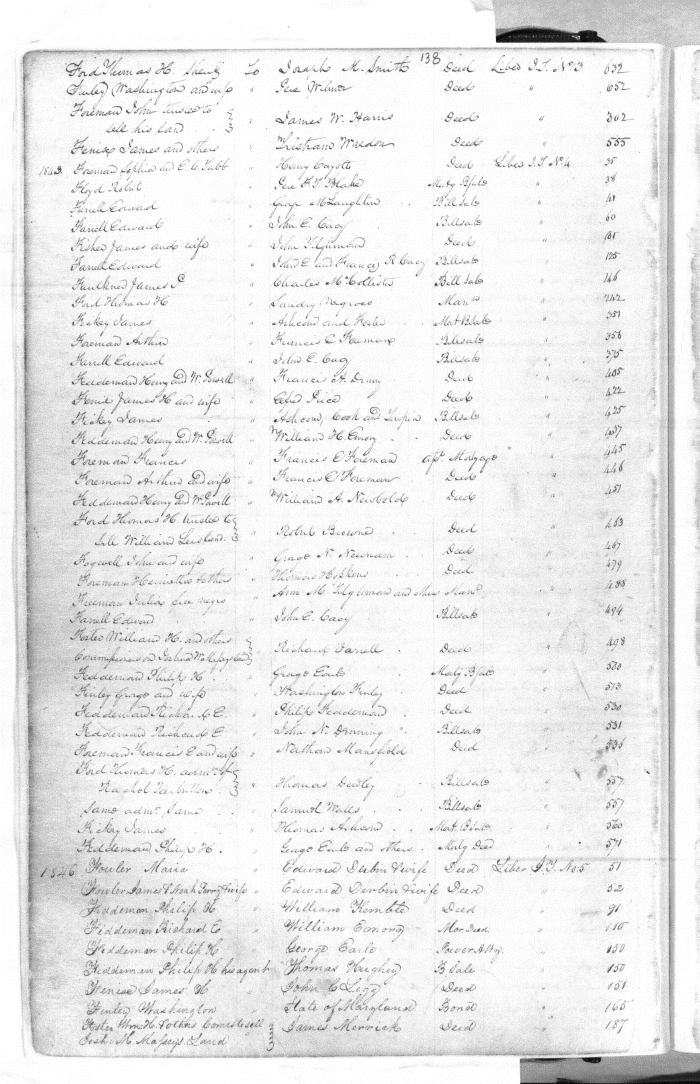 138
Ford Thomas H. Sheriff To Joseph M. Smith Deed Liber J.T. No 3 632
Finley Washington and wife " Geo Wilmer Deed " 652
Foreman John trustee to
sell his land " James W. Harris Deed " 302
Fenix James and others " Tristram Weedon Deed " 555
1845 Foreman Sophia and E. C. Tubb " Henry Cayots Deed Liber J.T. No 4 35
Floyd Robert " Geo F. T. Blake Matg Bsale " 38
Farrell Edward " George McLaughlin Billsale " 41
Farrell Edward " John E. Cacy Billsale " 60
Fisher James and wife " John Tilghman Deed " 101
Farrell Edward " John E and Francis R Cacy Billsale " 125
Faulkner James P " Charles McCollister Bill sale " 146
Ford Thomas H " Sundry Negroes Man " 242
Fickey James " Ashcom and Foster Mat Bsale " 351
Foreman Arthur " Francis C Foreman Billsale " 356
Farrell Edward " John E. Cacy Billsale " 375
Feddeman Henry and W. Powell " Francis A. Denny Deed " 405
James H and wife " Price Deed " 422
Fickey James " Ashcom, Cook and Billsale " 425
Feddeman Henry and W. Powell " William H. Emory Deed " 437
Foreman Francis " Francis C Foreman Mortgage " 445
Foreman Arthur and wife " Francis C Foreman Deed " 446
Feddeman Henry and W. Powell " William A. Newbold Deed " 451
Ford Thomas H. trustee to
sell William land " Robert Browne Deed " 463
Fogwell John and wife " George N. Newnam Deed " 467
Foreman Henrietta & others " Thomas Hopkins Deed " 479
Freeman Julia free negro " Ann M Tilghman and others Man " 488
Farrell Edward " John E. Cacy Billsale " 494
Foster William H. and others
Commissioners on Joshua W Massey's land " Richard Farrell Deed " 498
Feddeman Philip H " George Earle Matg Bsale " 500
Finley George and wife " Washington Finley Deed " 513
Feddeman Richard E. " Philip Feddeman Deed " 530
Feddeman Richard E " John N. Denning Billsale " 531
Foreman Francis C and wife " Nathan Mansfield Deed " 536
Ford Thomas H. admr of
Rachel Tarbutton " Thomas Dudley Billsale " 557
Same admr Same " Samuel Walls Billsale " 557
Fickey James " Thomas Ashcom Mat. Bsale " 560
Feddeman Philip H. " George Earle and others Matg Deed " 571
1846 Fowler Maria " Edward Durbin & wife Deed Liber J.T. No. 5 51
Fowler James & Noah Perry & wife " Edward Durbin & wife Deed " 52
Feddeman Philip H " William Kemble Deed " 91
Feddeman Richard C " William Emory Mor Deed " 115
Feddeman Philip H " George Earle Power Atty. " 150
Feddeman Philip H his agent " Thomas Hughey B Sale " 150
James H " John C Legg Deed " 151
Finley Washington " State of Maryland Bond " 165
Foster Wm H. & others Coms to sell " James Merrick Deed " 187
Josh. M. Massey's Land